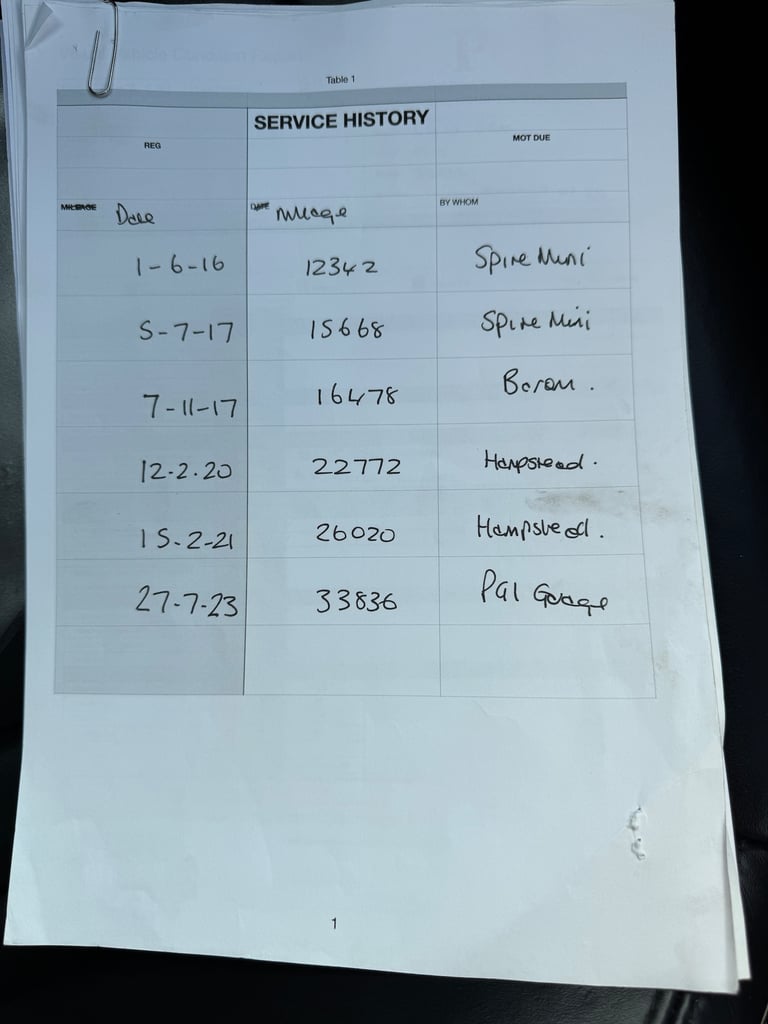 Table 1
SERVICE HISTORY
REG
MOT DUE
MILEAGE Date DATE Mileage BY WHOM
1-6-16 12342 Spire Mini
5-7-17 15668 Spire Mini
7-11-17 16478
12.2.20 22772 Hampstead.
15.2-21 26020 Hampstead.
27.7.23 33836 Garage
1